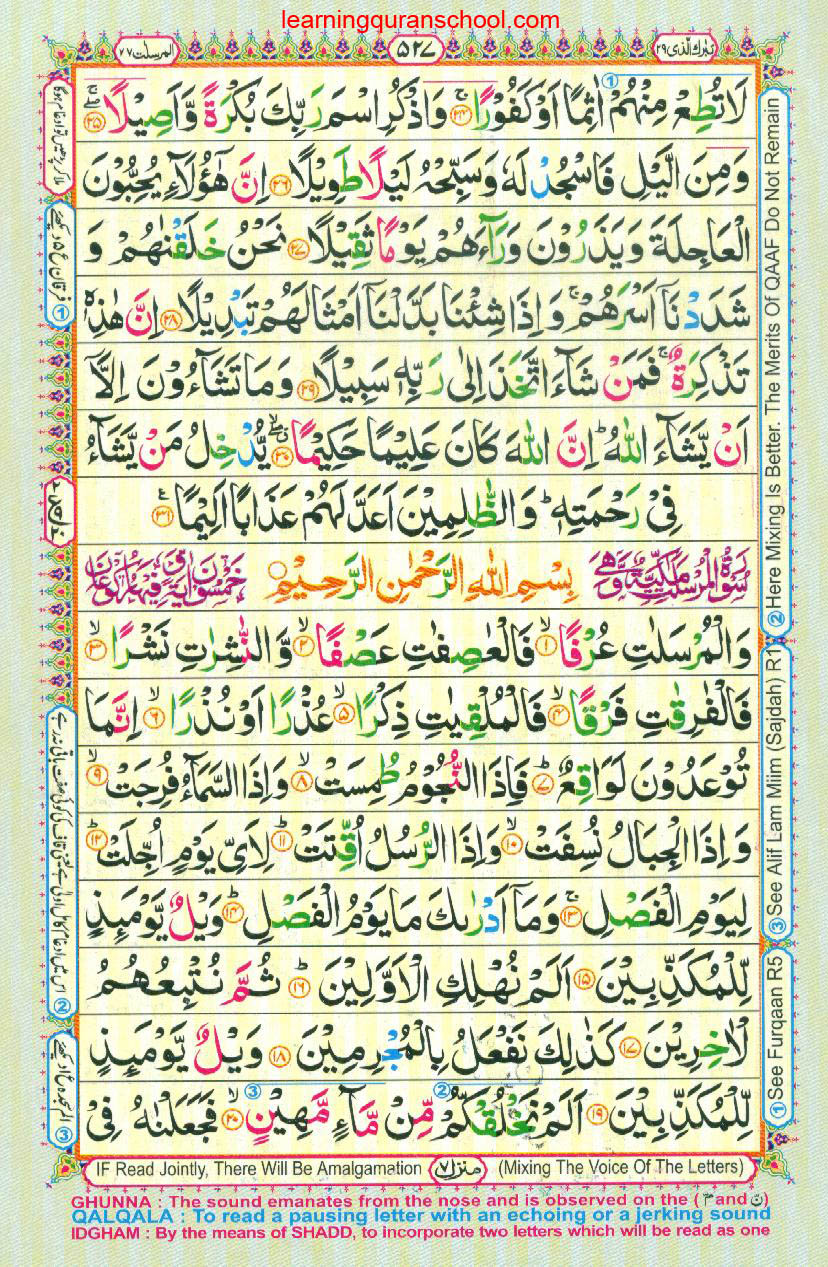 learningquranschool.com
المرسلت ٧٧
٥٢٧
تبٰرك الّذی ٢٩
لَا تُطِعْ مِنْهُمْ اٰثِمًا اَوْ كَفُوْرًا ۚ﴿۲۴﴾ وَاذْكُرِ اسْمَ رَبِّكَ بُكْرَةً وَّاَصِيْلًا ﴿۲۵﴾
وَمِنَ الَّيْلِ فَاسْجُدْ لَهٗ وَسَبِّحْهُ لَيْلًا طَوِيْلًا ﴿۲۶﴾ اِنَّ هٰٓؤُلَآءِ يُحِبُّوْنَ
الْعَاجِلَةَ وَيَذَرُوْنَ وَرَآءَهُمْ يَوْمًا ثَقِيْلًا ﴿۲۷﴾ نَحْنُ خَلَقْنٰهُمْ وَ
شَدَدْنَآ اَسْرَهُمْ ۚ وَاِذَا شِئْنَا بَدَّلْنَآ اَمْثَالَهُمْ تَبْدِيْلًا ﴿۲۸﴾ اِنَّ هٰذِهٖ
تَذْكِرَةٌ ۚ فَمَنْ شَآءَ اتَّخَذَ اِلٰى رَبِّهٖ سَبِيْلًا ﴿۲۹﴾ وَمَا تَشَآءُوْنَ اِلَّآ
اَنْ يَّشَآءَ اللّٰهُ ؕ اِنَّ اللّٰهَ كَانَ عَلِيْمًا حَكِيْمًا ﴿۳۰﴾ يُّدْخِلُ مَنْ يَّشَآءُ
فِيْ رَحْمَتِهٖ ؕ وَالظّٰلِمِيْنَ اَعَدَّ لَهُمْ عَذَابًا اَلِيْمًا ﴿۳۱﴾
سورة المرسلت مكية وهي بِسْمِ اللّٰهِ الرَّحْمٰنِ الرَّحِيْمِ خمسون اية وفيها ركوعان
وَالْمُرْسَلٰتِ عُرْفًا ۙ﴿۱﴾ فَالْعٰصِفٰتِ عَصْفًا ۙ﴿۲﴾ وَّالنّٰشِرٰتِ نَشْرًا ۙ﴿۳﴾
فَالْفٰرِقٰتِ فَرْقًا ۙ﴿۴﴾ فَالْمُلْقِيٰتِ ذِكْرًا ۙ﴿۵﴾ عُذْرًا اَوْ نُذْرًا ۙ﴿۶﴾ اِنَّمَا
تُوْعَدُوْنَ لَوَاقِعٌ ؕ﴿۷﴾ فَاِذَا النُّجُوْمُ طُمِسَتْ ۙ﴿۸﴾ وَاِذَا السَّمَآءُ فُرِجَتْ ۙ﴿۹﴾
وَاِذَا الْجِبَالُ نُسِفَتْ ۙ﴿۱۰﴾ وَاِذَا الرُّسُلُ اُقِّتَتْ ؕ﴿۱۱﴾ لِاَيِّ يَوْمٍ اُجِّلَتْ ؕ﴿۱۲﴾
لِيَوْمِ الْفَصْلِ ۚ﴿۱۳﴾ وَمَآ اَدْرٰىكَ مَا يَوْمُ الْفَصْلِ ؕ﴿۱۴﴾ وَيْلٌ يَّوْمَىِٕذٍ
لِّلْمُكَذِّبِيْنَ ﴿۱۵﴾ اَلَمْ نُهْلِكِ الْاَوَّلِيْنَ ؕ﴿۱۶﴾ ثُمَّ نُتْبِعُهُمُ
الْاٰخِرِيْنَ ﴿۱۷﴾ كَذٰلِكَ نَفْعَلُ بِالْمُجْرِمِيْنَ ﴿۱۸﴾ وَيْلٌ يَّوْمَىِٕذٍ
لِّلْمُكَذِّبِيْنَ ﴿۱۹﴾ اَلَمْ نَخْلُقْكُّمْ مِّنْ مَّآءٍ مَّهِيْنٍ ۙ﴿۲۰﴾ فَجَعَلْنٰهُ فِيْ
② Here Mixing Is Better. The Merits Of QAAF Do Not Remain
③ See Alif Lam Miim (Sajdah) R1
① See Furqaan R5
IF Read Jointly, There Will Be Amalgamation منزل ٧ (Mixing The Voice Of The Letters)
GHUNNA : The sound emanates from the nose and is observed on the (مّ and نّ)
QALQALA : To read a pausing letter with an echoing or a jerking sound
IDGHAM : By the means of SHADD, to incorporate two letters which will be read as one